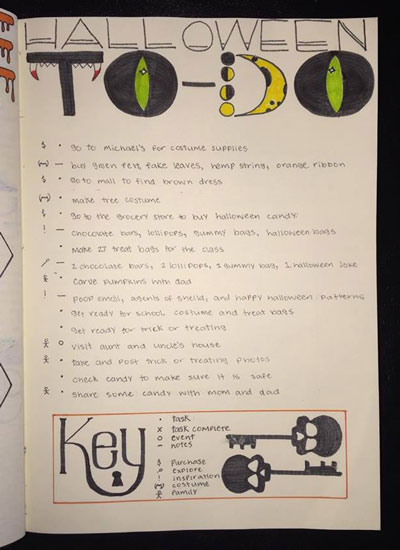 HALLOWEEN
TO-DO
$ • go to Michael's for costume supplies
— buy green felt, fake leaves, hemp string, orange ribbon
$ • go to mall to find brown dress
• make tree costume
$ • go to the grocery store to buy halloween candy
! — chocolate bars, lollipops, gummy bags, halloween bags
• Make 27 treat bags for the class
— 2 chocolate bars, 2 lollipops, 1 gummy bag, 1 halloween joke
• carve pumpkins with dad
! — poop emoji, agents of shield, and happy halloween patterns
• get ready for school costume and treat bags
• get ready for trick or treating
o visit aunt and uncle's house
• take and post trick or treating photos
• check candy to make sure it is safe
• share some candy with mom and dad
Key
• task
x task complete
o event
– notes
$ purchase
explore
! inspiration
costume
family